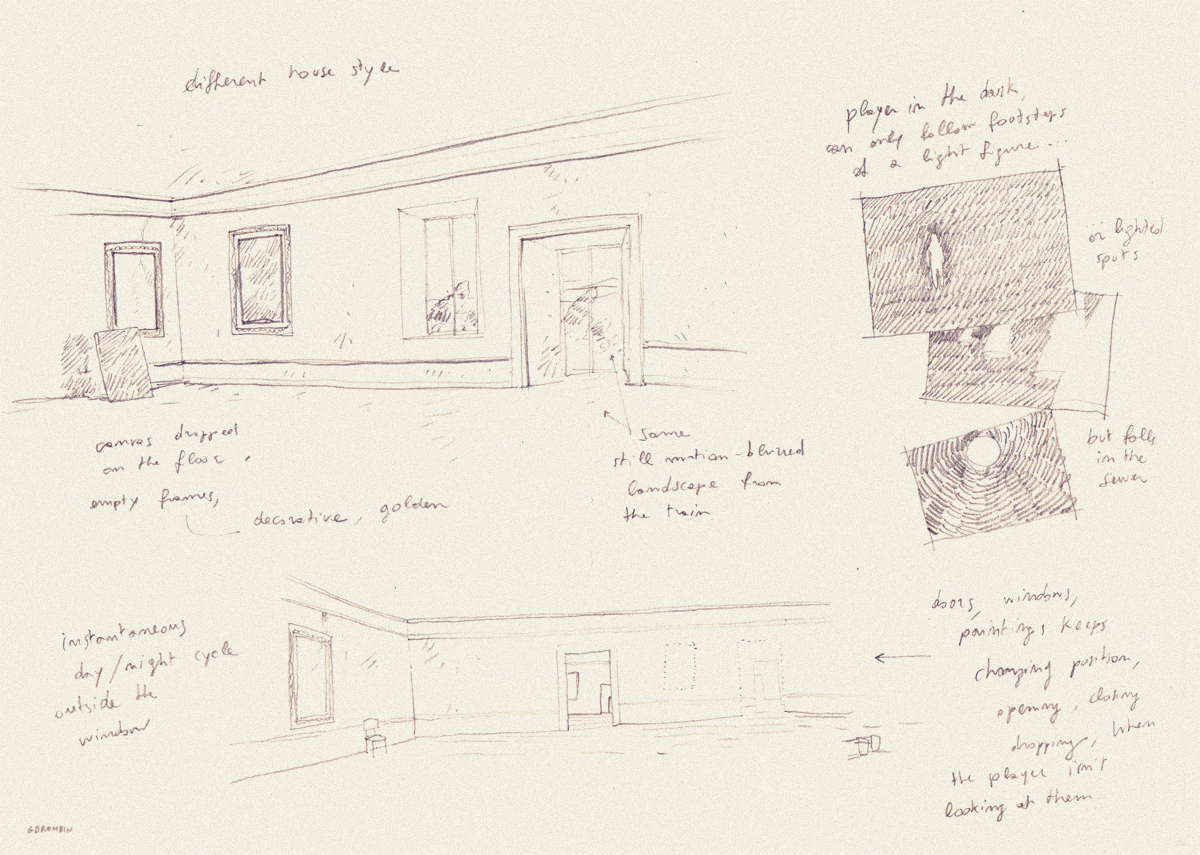 different house style
player in the dark,
can only follow footsteps
of a light figure...
or lighted
spots
but falls
in the
sewer
canvas dropped
on the floor.
empty frames,
decorative, golden
same
still motion-blurred
landscape from
the train
instantaneous
day/night cycle
outside the
window
doors, windows,
paintings keeps
changing position,
opening, closing
dropping, when
the player isn't
looking at them